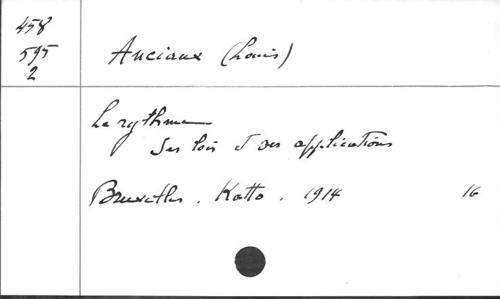 458
595
2
Anciaux (Louis)
Le rythme
Ses lois et ses applications
Bruxelles. Katto. 1914 16